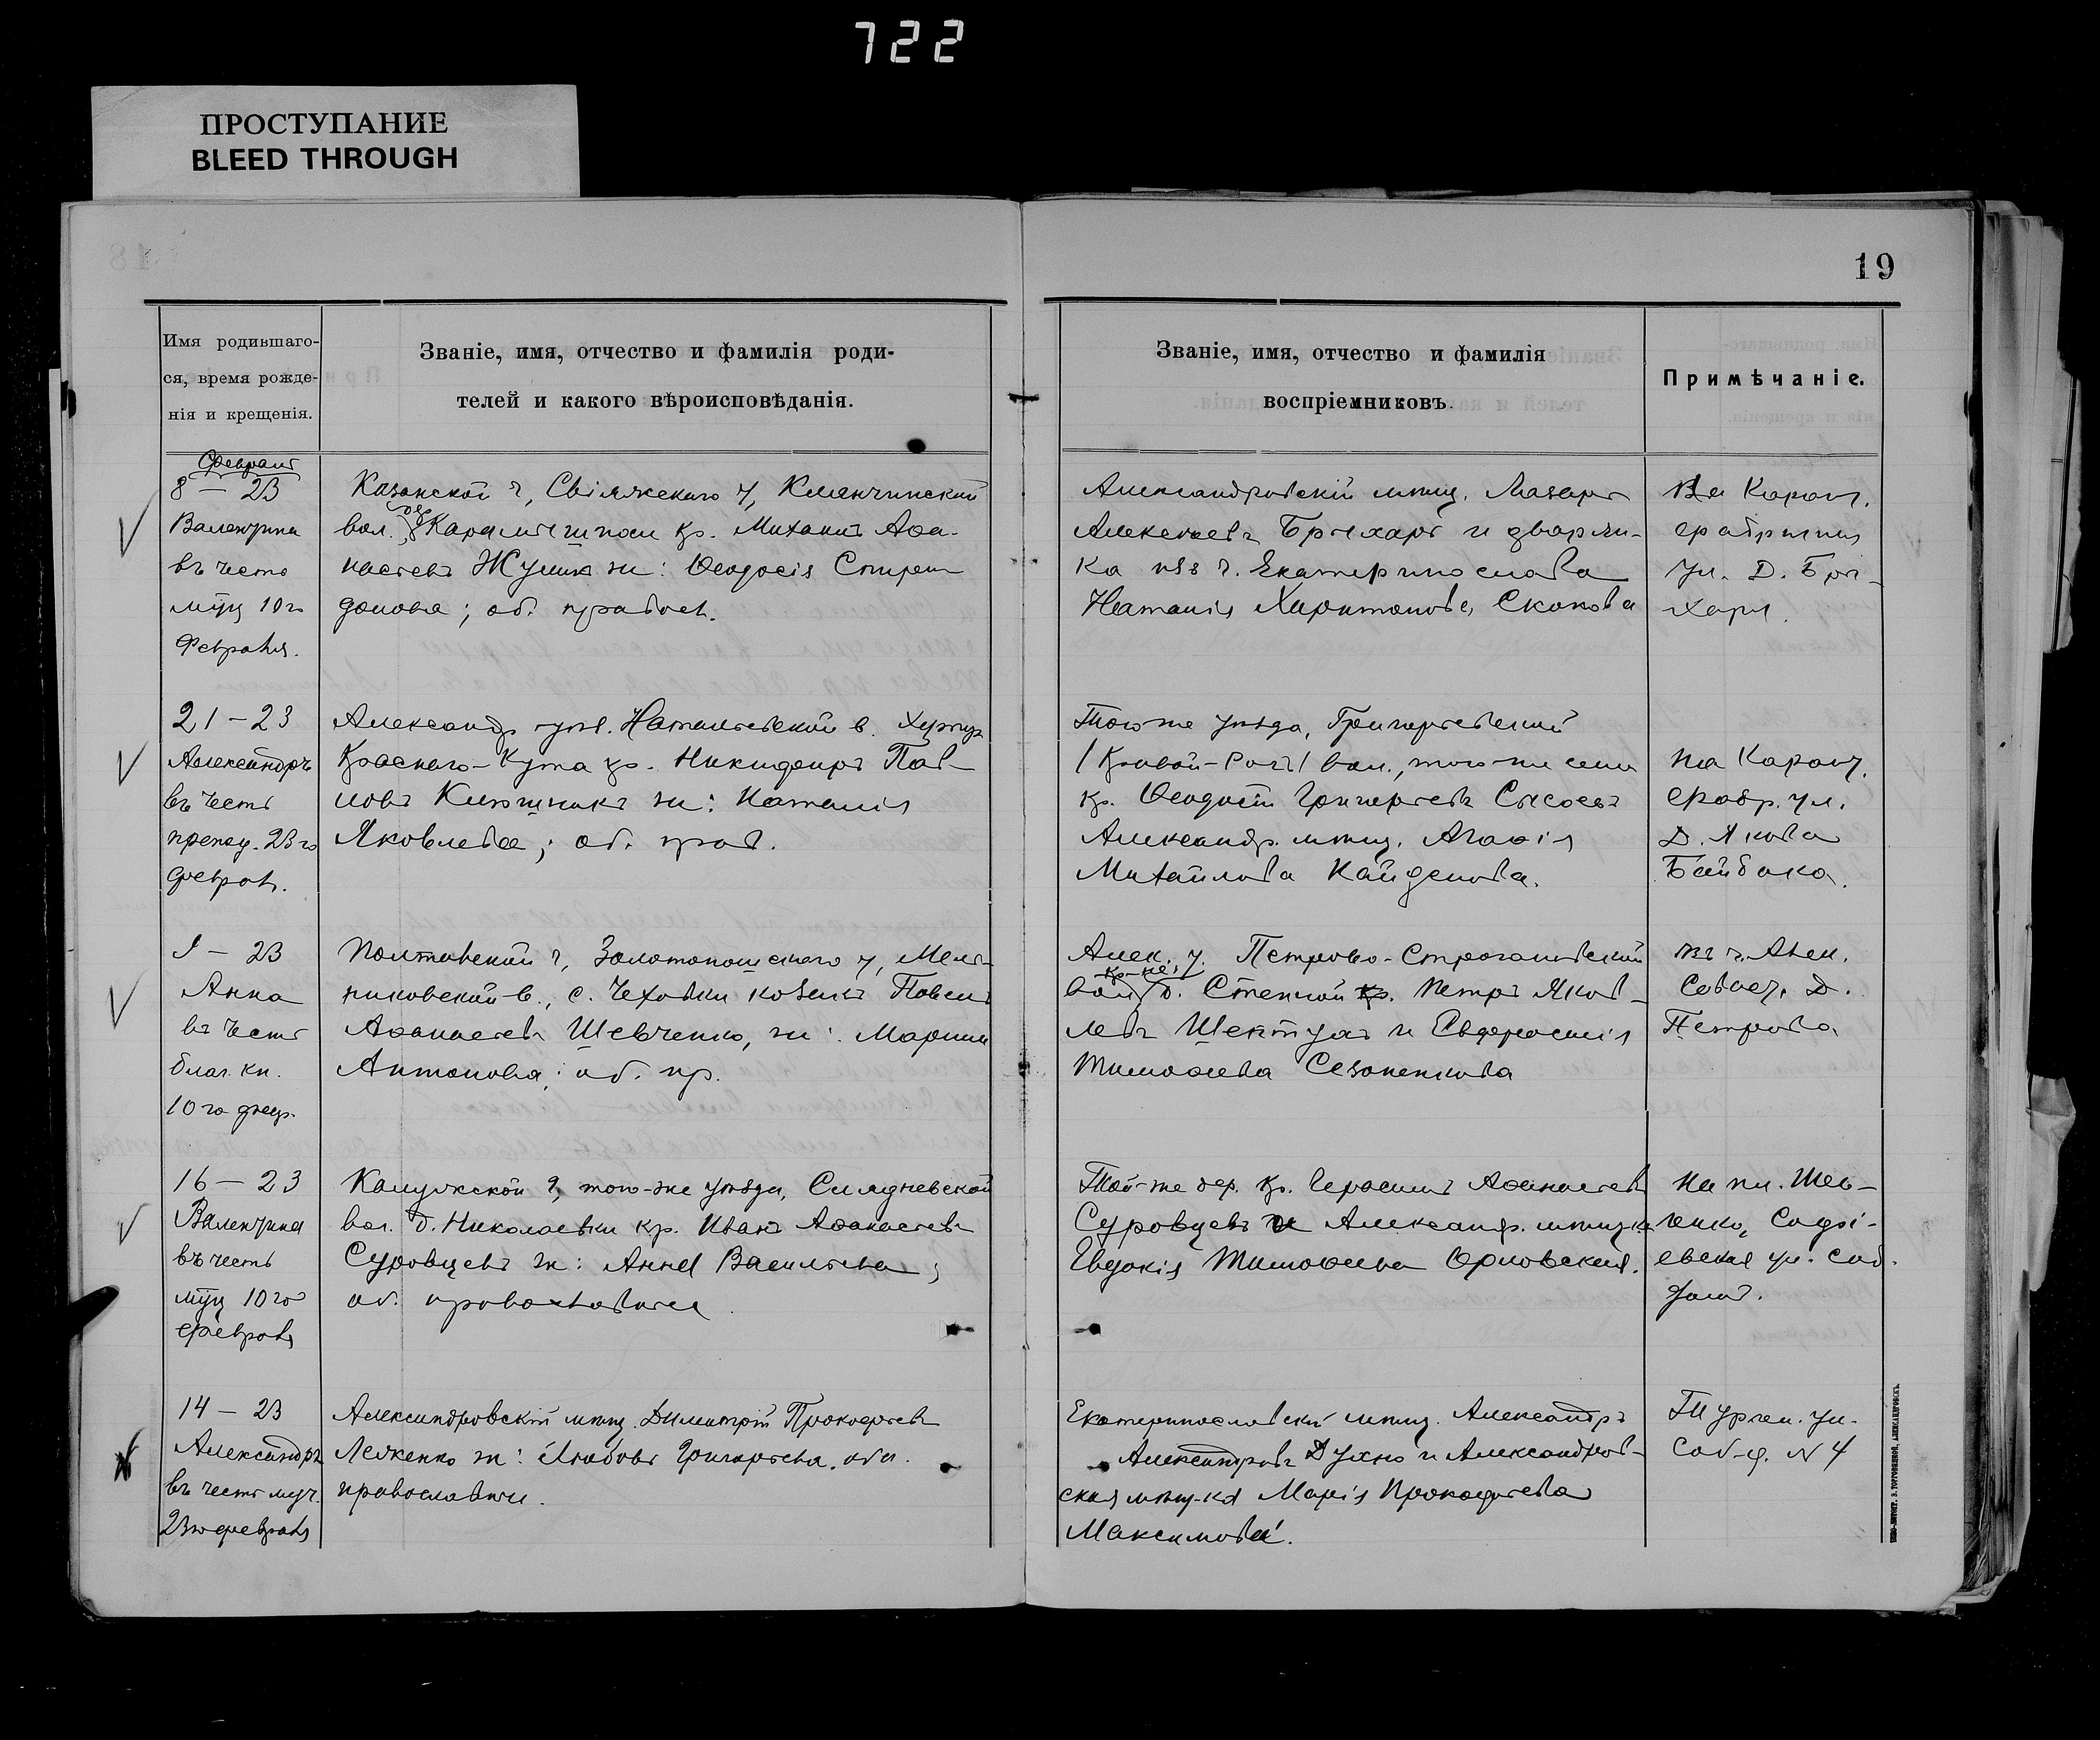 722
ПРОСТУПАНИЕ
BLEED THROUGH
19
Имя родившаго-
ся, время рожде-
нія и крещенія.
Званіе, имя, отчество и фамилія роди-
телей и какого вѣроисповѣданія.
Званіе, имя, отчество и фамилія
воспріемниковъ.
Примѣчаніе.
Февраль
8 – 23
Валентина
въ честь
мцц 10го
Февраля.
Казанской г, Свіяжскаго у,
вол. кр. Михаилъ Аѳа-
насіевъ ж: Ѳеодосія Спири
донова; об. правосл.
Александровскій мѣщ. Лазарь
Алексѣевъ и дворян-
ка изъ г. Екатеринослава
Наталія Харитонова Скокова
На
ул. Д.
21 – 23
Александръ
въ честь
препод. 23го
феврал.
Александр. уѣз. Натальевской в. Хутор
Краснаго-Кута кр. Никифоръ Пав-
ловъ ж: Наталія
Яковлева; об. прав.
Того-же уѣзда, Григорьевской
/Кривой-Рогъ/ вол., того-же села
кр. Ѳеодосій Григорьевъ Сысоевъ
Александр. мѣщ. Агаѳія
Михайлова Кайденова.
на
ул.
Д. Якова
Байбака.
9 – 23
Анна
въ честь
благ. кн.
10го февр.
Полтавской г, Золотоношскаго у, Мель-
никовской в., с. Чеховки козакъ Павелъ
Аѳанасіевъ Шевченко, ж: Марина
Антонова; об. пр.
Алек. у. Петрово-
вол. д. Степной кр. Петръ Яков-
левъ и Евфросинія
Тимоѳеева
въ г. Алек.
Д.
Петрова
16 – 23
Валентина
въ честь
мцц 10го
февраля
Калужской г, того-же уѣзда,
вол. д. Николаевки кр. Иванъ Аѳанасіевъ
Суровцевъ ж: Анна Васильева;
об. православные.
Той-же дер. кр. Герасимъ Аѳанасіевъ
Суровцевъ и Александр. мѣщ-ка
Евдокія Тимоѳеева Орловская.
на пл. Шев-
ченко, Софі-
евская ул. соб.
домъ.
14 – 23
Александръ
въ честь муч.
23го февраля
Александровскій мѣщ. Димитрій Прокофьевъ
Леженко ж: Любовь Григорьева. оба
православные.
Екатеринославскій мѣщ. Александръ
Александровъ Духно и Александров-
ская мѣщ-ка Марія Прокофьева
Максимова.
Турген. ул.
соб-д. N 4